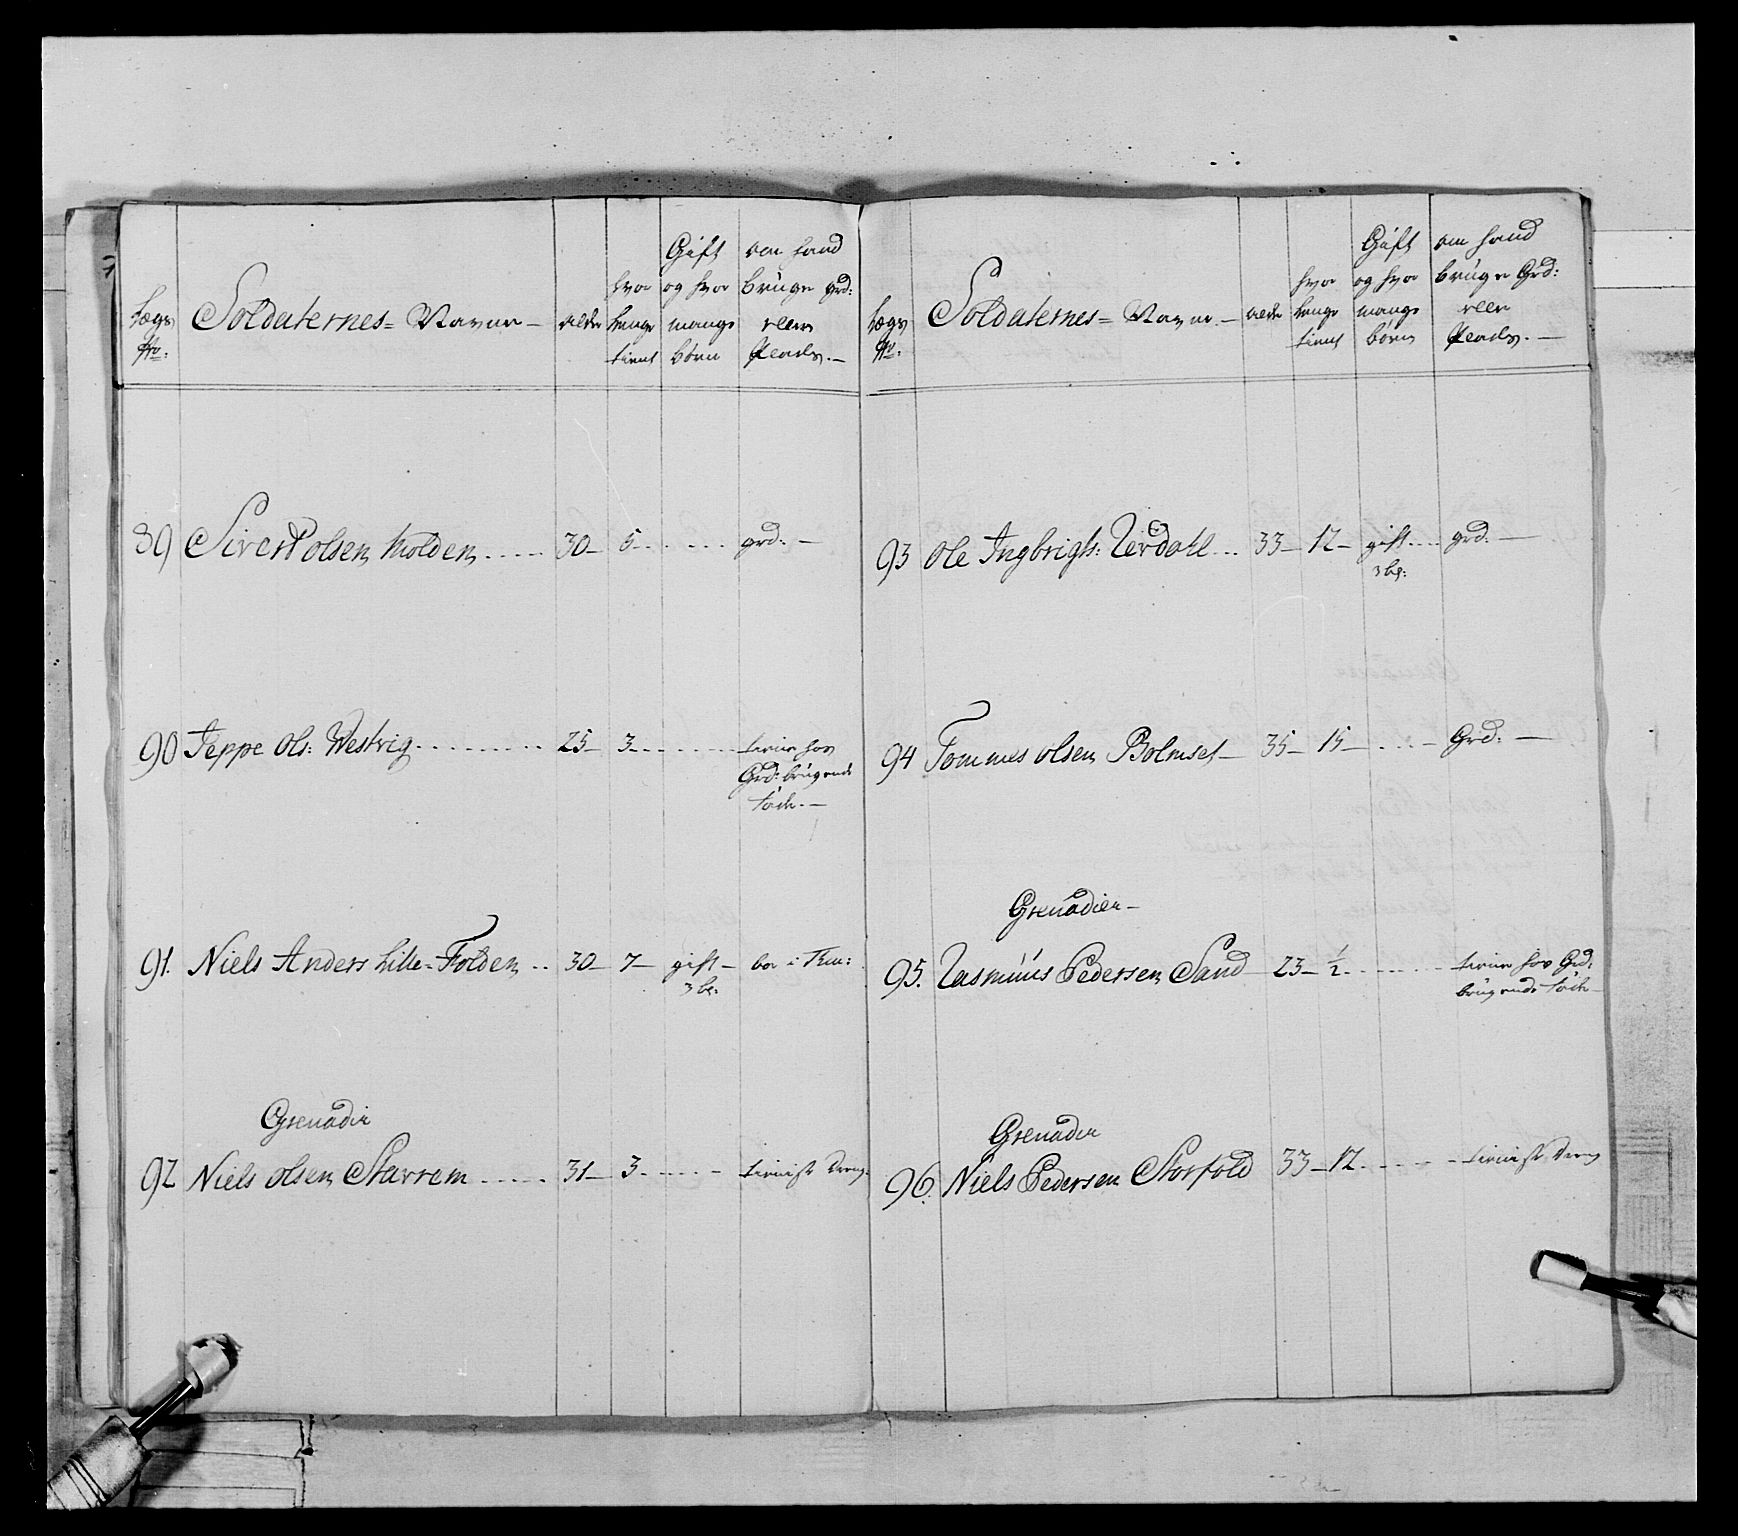 Lægs No: | Soldaternes= Navne — | alder | hvor lenge tient | Gift og hvor mange børn | om hand bruger grd: eller Plads. —
89 Siver Polsen Molden ..... 30 — 5 ..... grd: —
90 Jeppe Ols: Westvig ......... 25 — 3 ...... tiener hos
Grd: brugende
fader. —
91. Niels Anders Lille=Folden .. 30 — 7 — gift —
3 b:
Grenadier
92 Niels Olsen Starrem ..... 31 — 3 ..... — Dreng
Lægs No: | Soldaternes= Navne. — | alder | hvor lenge tient | Gift og hvor mange børn | om hand bruger Grd: eller Plads. —
93 Ole Ingbrigts: Uerdahl ... 33 — 12 — gift .... grd. —
3 b:
94 Tommes Olsen Bolmset — 35 — 15 — .... Grd: —
Grenadier —
95. Rasmus Pedersen Sand — 23 — ½ ...... tiener hos Grd:
brugende fader —
Grenadier
96. Niels Pedersen Storfold 33 — 12 ..... — Dreng